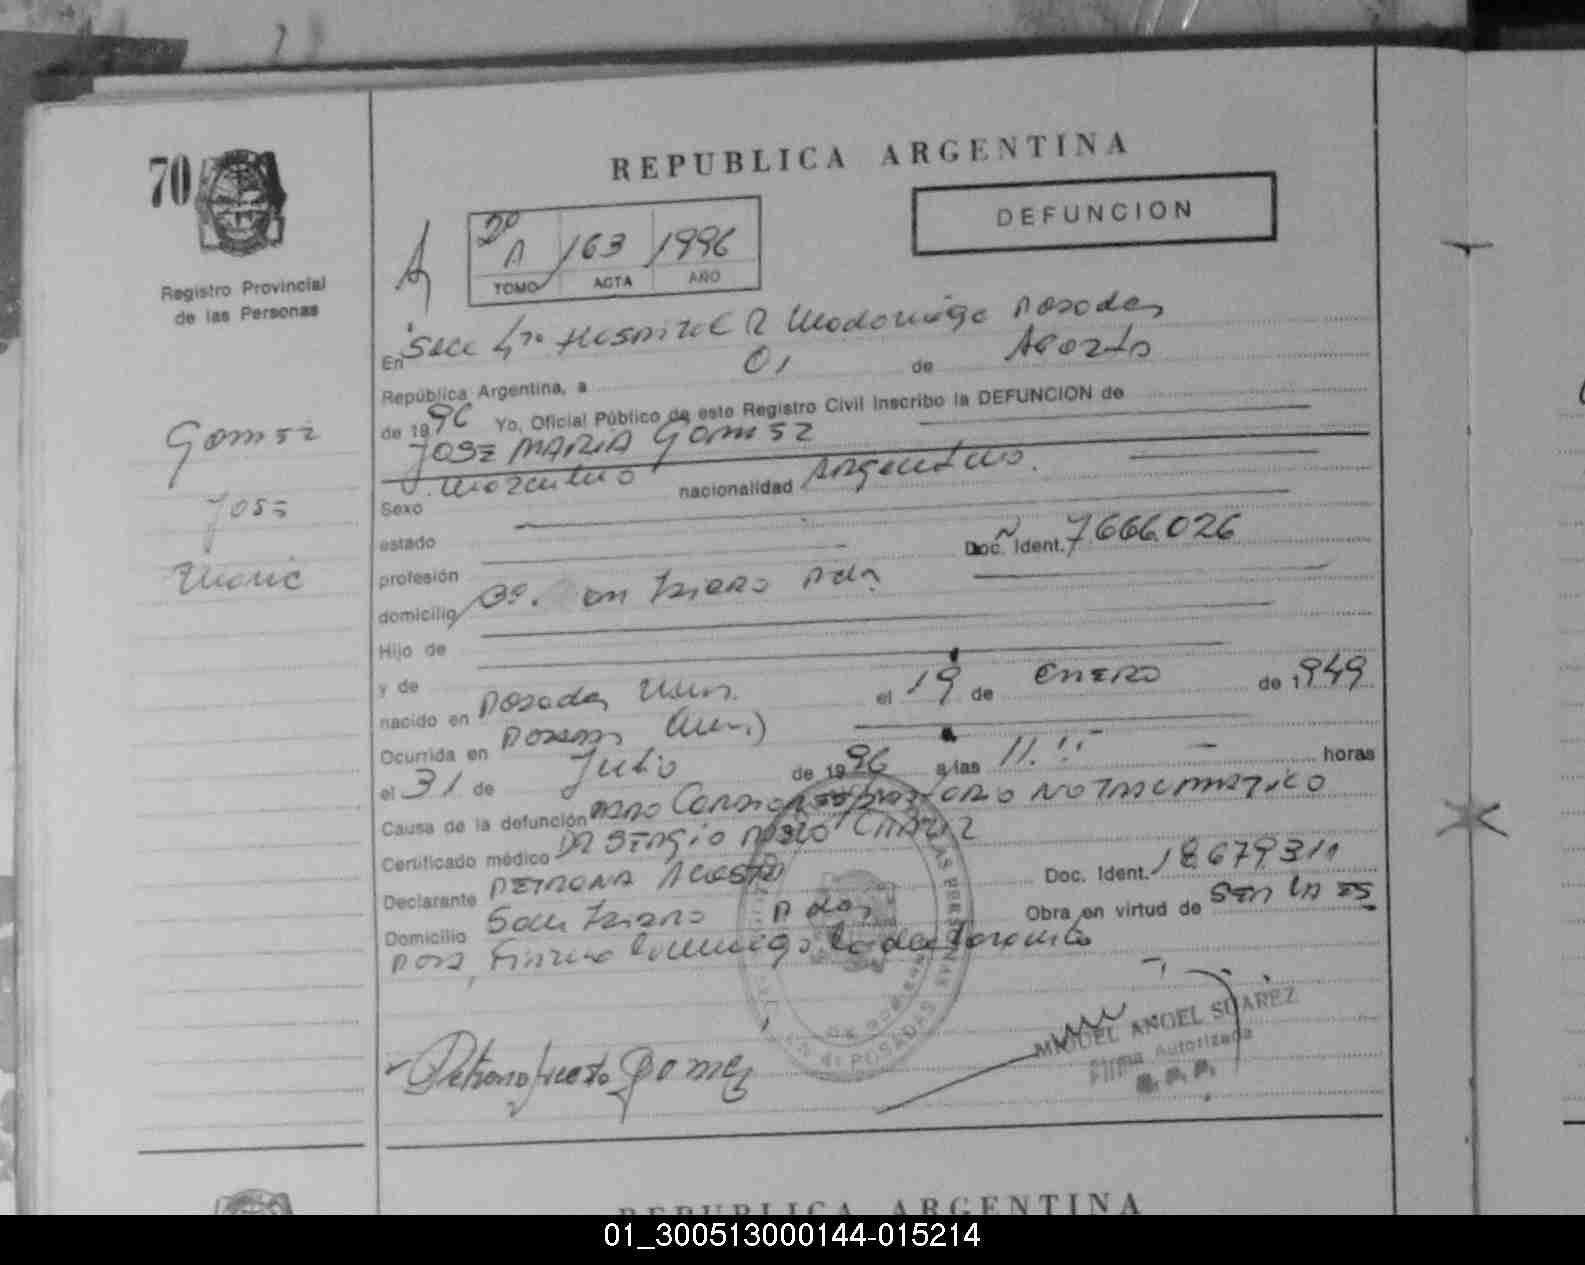 70
REPUBLICA ARGENTINA
DEFUNCION
2º
A 163 1996
TOMO ACTA AÑO
Registro Provincial
de las Personas
En Secc 4ta Hospital R Madariaga Posadas
República Argentina, a 01 de Agosto
de 1996 Yo, Oficial Público de este Registro Civil inscribo la DEFUNCION de
JOSE MARIA GOMEZ
Gomez
Jose
Maria
Sexo Masculino nacionalidad Argentino.
estado
profesión Doc. Ident. 7666.026
domicilio Bº. San Isidro Pdas
Hijo de
y de
nacido en Posadas Mnes. el 19 de ENERO de 1949
Ocurrida en Posadas
el 31 de Julio de 1996 a las 11. horas
Causa de la defunción PARO CARDIORESPIRATORIO NO TRAUMATICO
Certificado médico DR SERGIO
Declarante PETRONA ACOSTA Doc. Ident.
Domicilio San Isidro Pdas Obra en virtud de SER LA ES
POSA
Petrona Acosta Gomez
LAS PERSONAS
POSADAS
MIGUEL ANGEL SUAREZ
Firma Autorizada
R. P. P.
REPUBLICA ARGENTINA
01_300513000144-015214